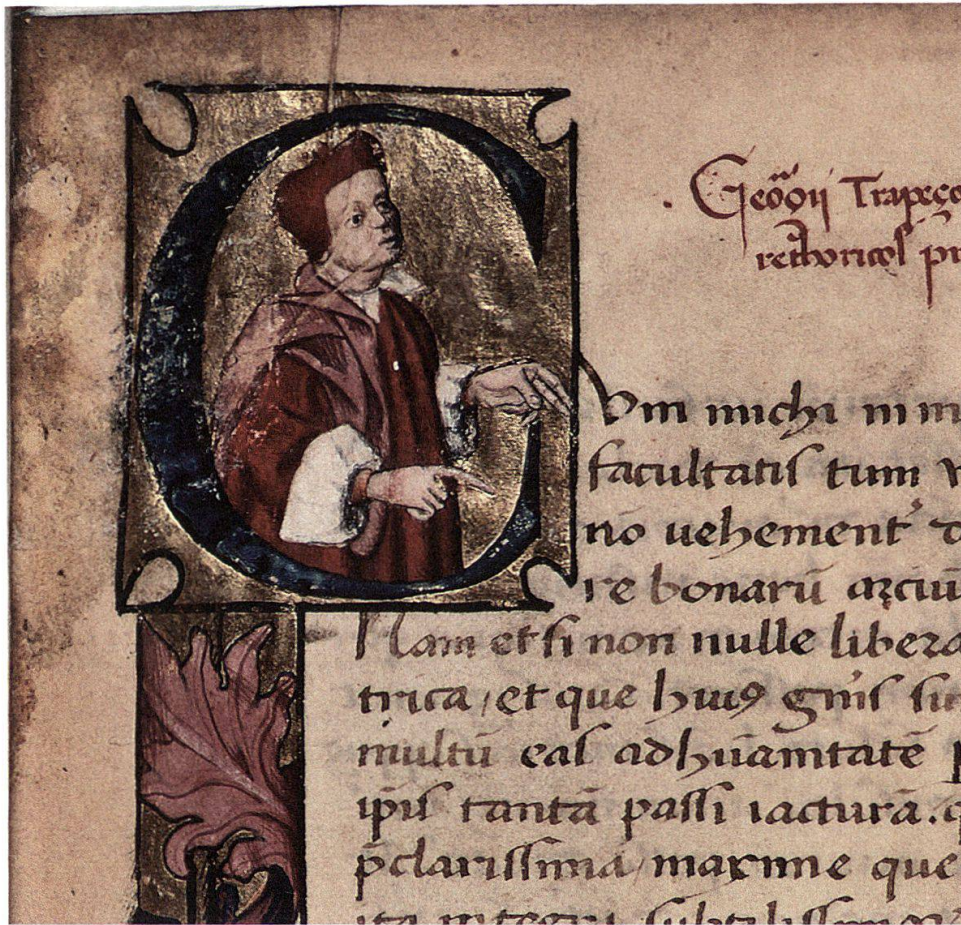 Geor͂gij Trapeço
rethoricoꝝ pri
CVm michi in m
facultatis tum v
nō uehementʾ d
re bonarū arciū
Nam et si non nulle libera
trica, et que huiꝰ gn̄is su
multū eas ad hūanitatē p
ip̄is tantā passi iacturā. q
p̄clarissima maxime que
ita integri subtilissim